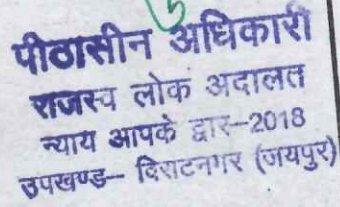 पीठासीन अधिकारी
राजस्व लोक अदालत
न्याय आपके द्वार–2018
उपखण्ड– विराटनगर (जयपुर)